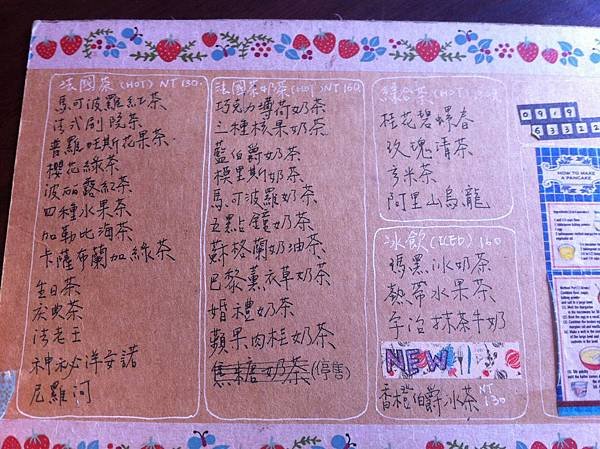 法國茶 (HOT) NT 130.
馬可波羅紅茶
法式劇院茶
普羅旺斯花果茶
櫻花綠茶
波麗露紅茶
四種水果茶
加勒比海茶
卡薩布蘭加綠茶
生日茶
慶典茶
法老王
神祕洋安諾
尼羅河
法國茶奶茶 (HOT) NT 160
巧克力薄荷奶茶
三種核果奶茶
藍伯爵奶茶
模里斯奶茶
馬可波羅奶茶
五點鐘奶茶
蘇格蘭奶油茶
巴黎薰衣草奶茶
婚禮奶茶
蘋果肉桂奶茶
焦糖奶茶 (停售)
綜合茶 (HOT)
桂花碧螺春
玫瑰清茶
玄米茶
阿里山烏龍
冰飲 (ICED) 160
瑪黑冰奶茶
熱帶水果茶
宇治抹茶牛奶
NEW
香橙伯爵冰茶 NT 130
0919
63322
HOW TO MAKE
A PANCAKE